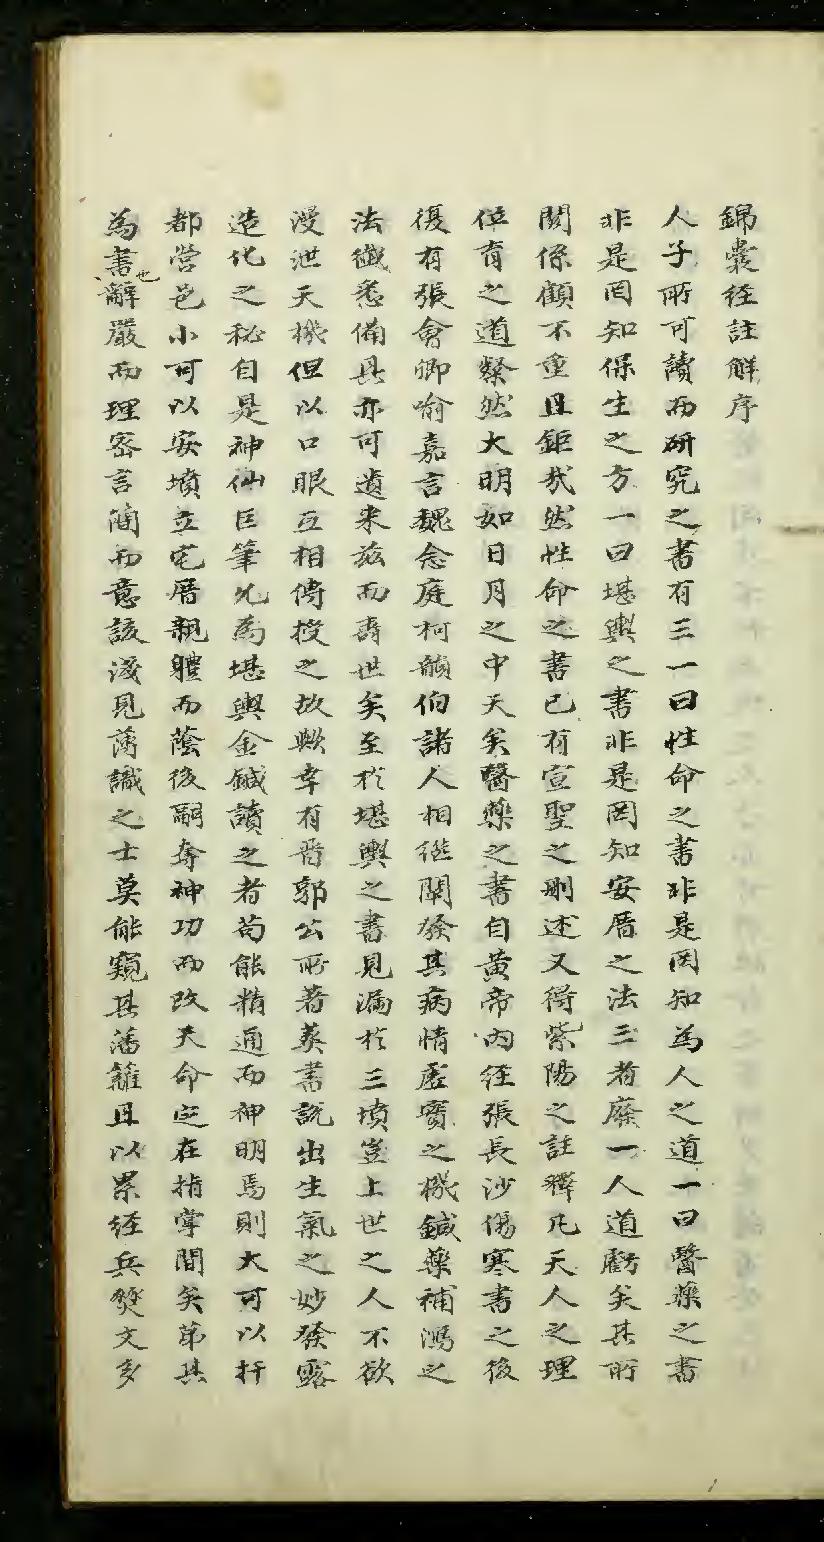 錦囊經註解序
人子所可讀而研究之書有三一曰性命之書非是罔知為人之道一曰醫藥之書
非是罔知保生之方一曰堪輿之書非是罔知安厝之法三者廢一人道虧矣其所
関係顧不重且鉅㦲然性命之書已有宣聖之刪述又得紫陽之註釋凡天人之理
位育之道粲然大明如日月之中天矣醫藥之書自黃帝內經張長沙傷寒書之後
復有張會卿喻嘉言魏念庭柯韻伯諸人相繼闡發其病情虛實之機鍼藥補瀉之
法纖悉備具亦可遺来茲而壽世矣至於堪輿之書見漏於三墳豈上世之人不欲
漫泄天機但以口眼互相傳授之故歟幸有晋郭公所著葬書說出生氣之妙發露
造化之秘自是神仙巨筆允為堪輿金鍼讀之者苟能精通而神明焉則大可以扞
都營邑小可以安墳立宅厝親體而蔭後嗣奪神功而改天命㝎在指掌間矣苐其
為書也辭嚴而理密言簡而意該淺見薄識之士莫能窺其藩籬且以累經兵燹文多